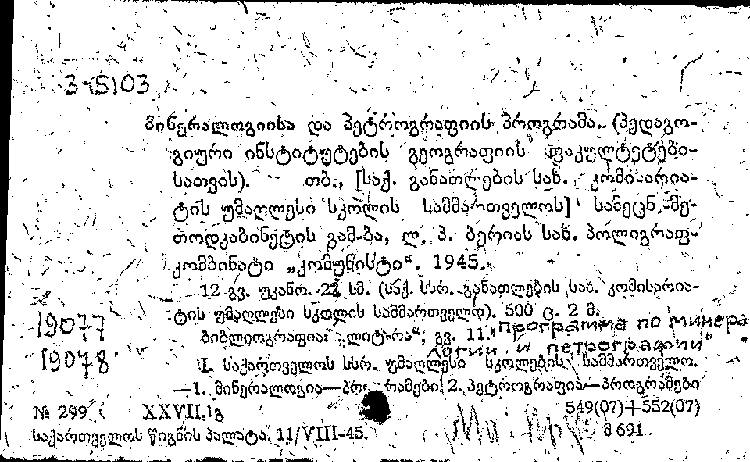 მინერალოგიისა და პეტროგრაფიის პროგრამა. (პედაგო-
გიური ინსტიტუტების გეოგრაფიის ფაკულტეტები-
სათვის). თბ., [საქ. განათლების სახ. კომისარია-
ტის უმაღლესი სკოლის სამმართველოს] სამეცნ.-მე-
თოდკაბინეტის გამ-ბა, ლ. პ. ბერიას სახ. პოლიგრაფ-
კომბინატი „კომუნისტი“. 1945.
12 გვ. უკანო. 22 სმ. (საქ. სსრ. განათლების სახ. კომისარია-
ტის უმაღლესი სკოლის სამმართველო). 500 ც. 2 მ.
19077
ბიბლიოგრაფია: „ლიტ-რა“, გვ. 11. "Программа по минера
логии и петрографии"
19078
I. საქართველოს სსრ. უმაღლესი სკოლების სამმართველო.
—1. მინერალოგია—პროგრამები 2. პეტროგრაფია—პროგრამები
№ 299 XXVII. 549(07)+552(07)
საქართველოს წიგნის პალატა. 11/VIII-45. 8691